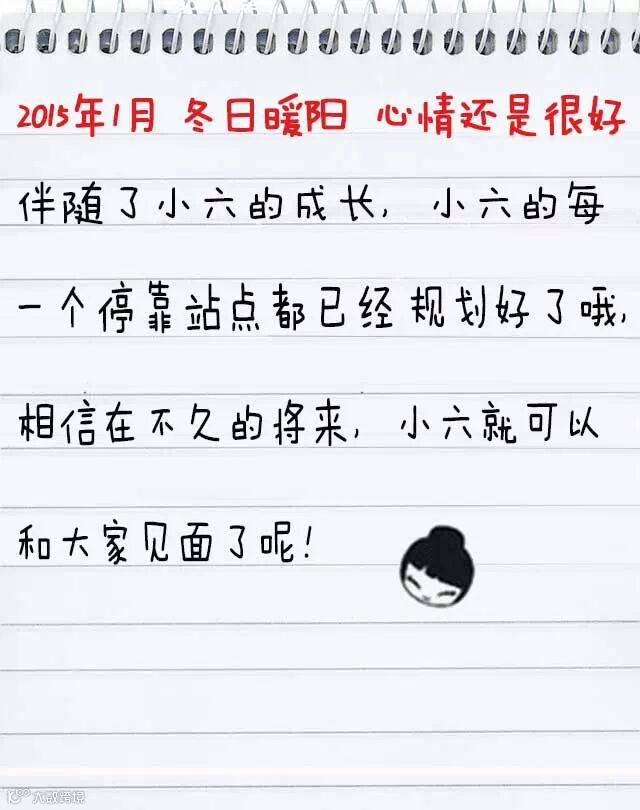 2015年1月 冬日暖阳 心情还是很好
伴随了小六的成长, 小六的每
一个停靠站点都已经规划好了哦,
相信在不久的将来, 小六就可以
和大家见面了呢!
大数跨境